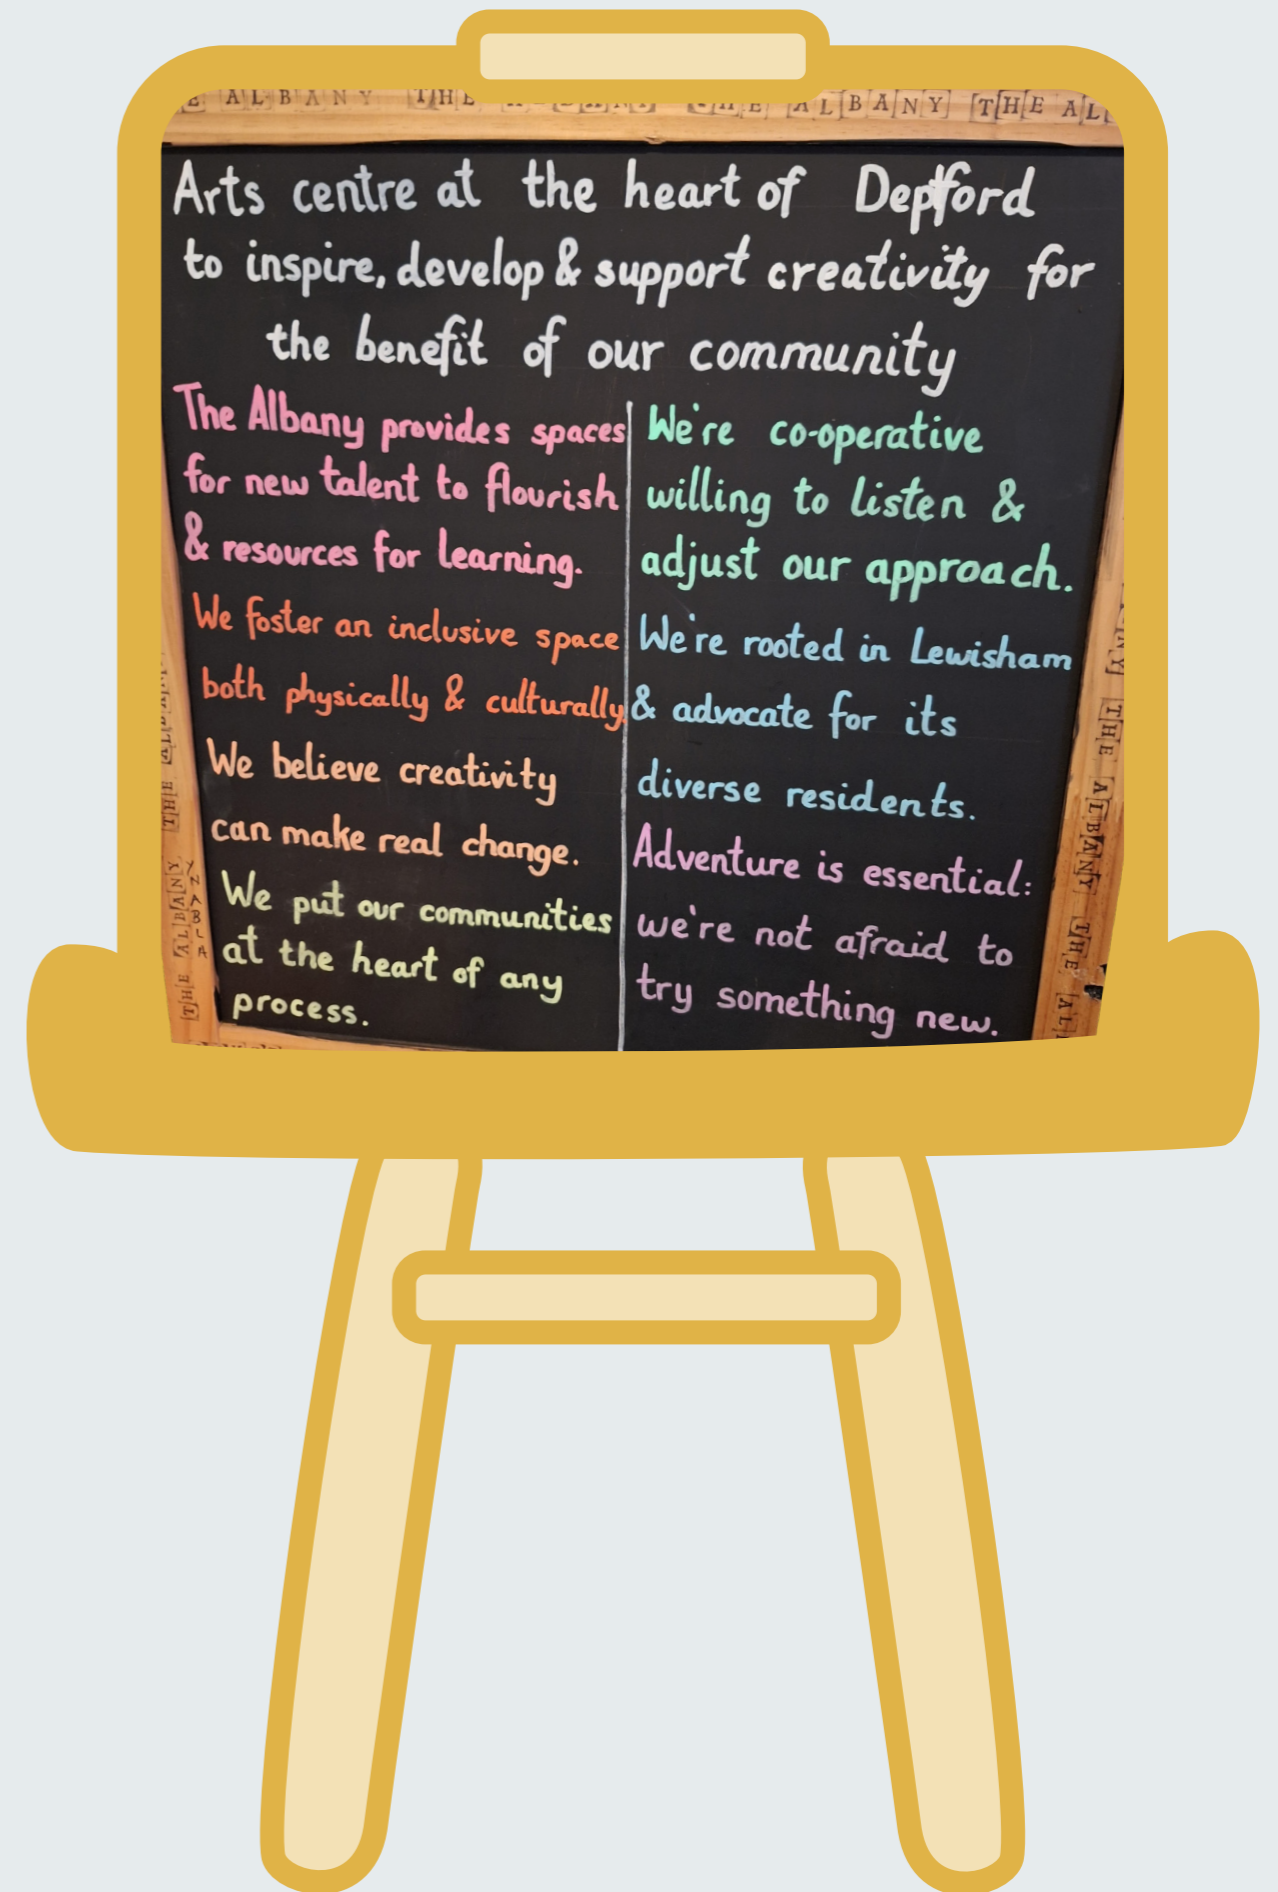 E ALBANY THE ALBANY THE ALBANY THE AL
Arts centre at the heart of Deptford
to inspire, develop & support creativity for
the benefit of our community
The Albany provides spaces
for new talent to flourish
& resources for learning.
We foster an inclusive space
both physically & culturally.
We believe creativity
can make real change.
We put our communities
at the heart of any
process.
We're co-operative
willing to listen &
adjust our approach.
We're rooted in Lewisham
& advocate for its
diverse residents.
Adventure is essential:
we're not afraid to
try something new.
THE ALBANY
THE ALBANY
THE ALBANY THE AL